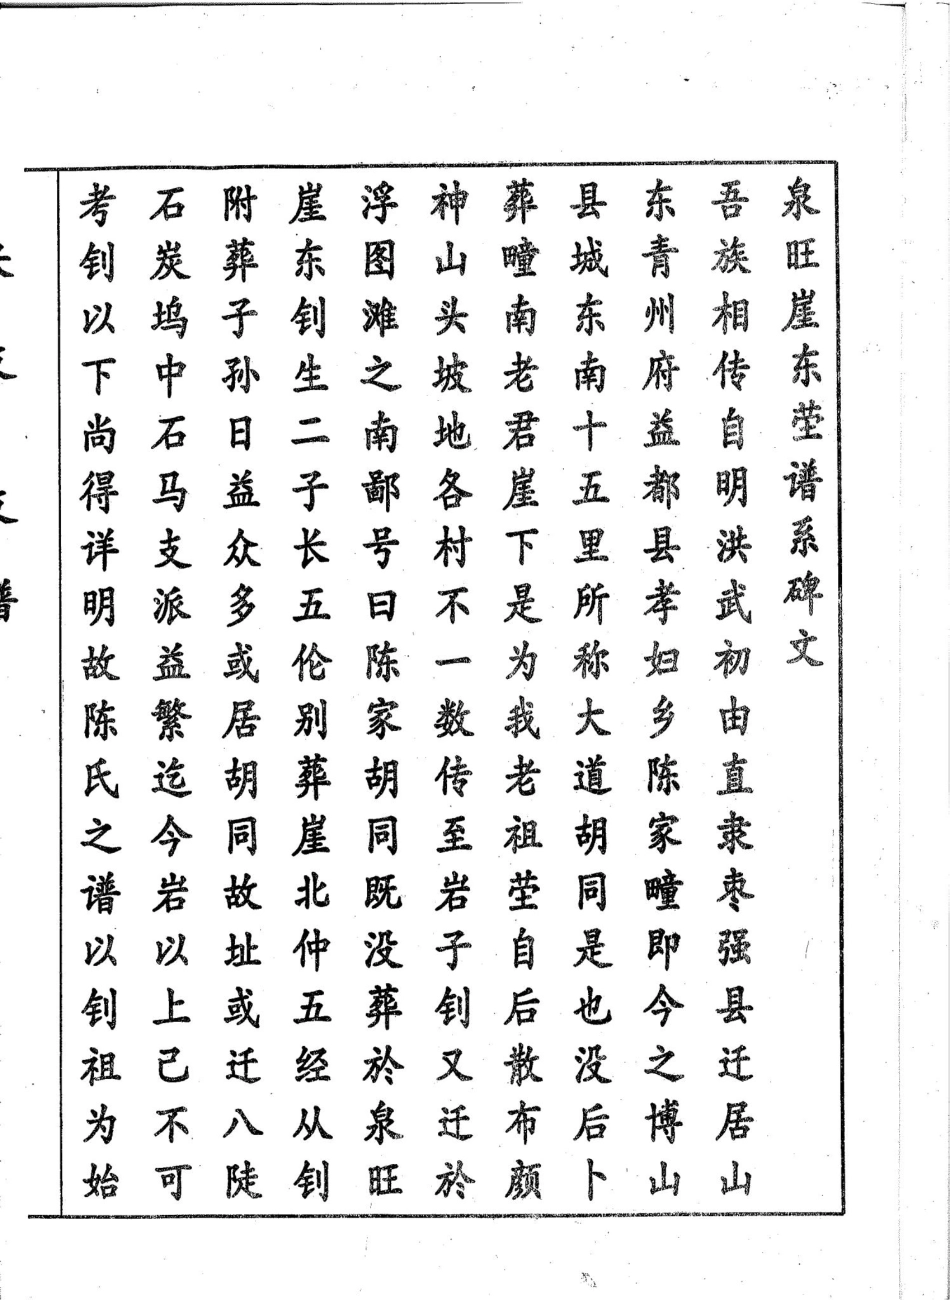 泉旺崖东茔谱系碑文
吾族相传自明洪武初由直隶枣强县迁居山
东青州府益都县孝妇乡陈家疃即今之博山
县城东南十五里所称大道胡同是也没后卜
葬疃南老君崖下是为我老祖茔自后散布颜
神山头坡地各村不一数传至岩子钊又迁於
浮图滩之南鄙号曰陈家胡同既没葬於泉旺
崖东钊生二子长五伦别葬崖北仲五经从钊
附葬子孙日益众多或居胡同故址或迁八陡
石炭坞中石马支派益繁迄今岩以上已不可
考钊以下尚得详明故陈氏之谱以钊祖为始
支
谱